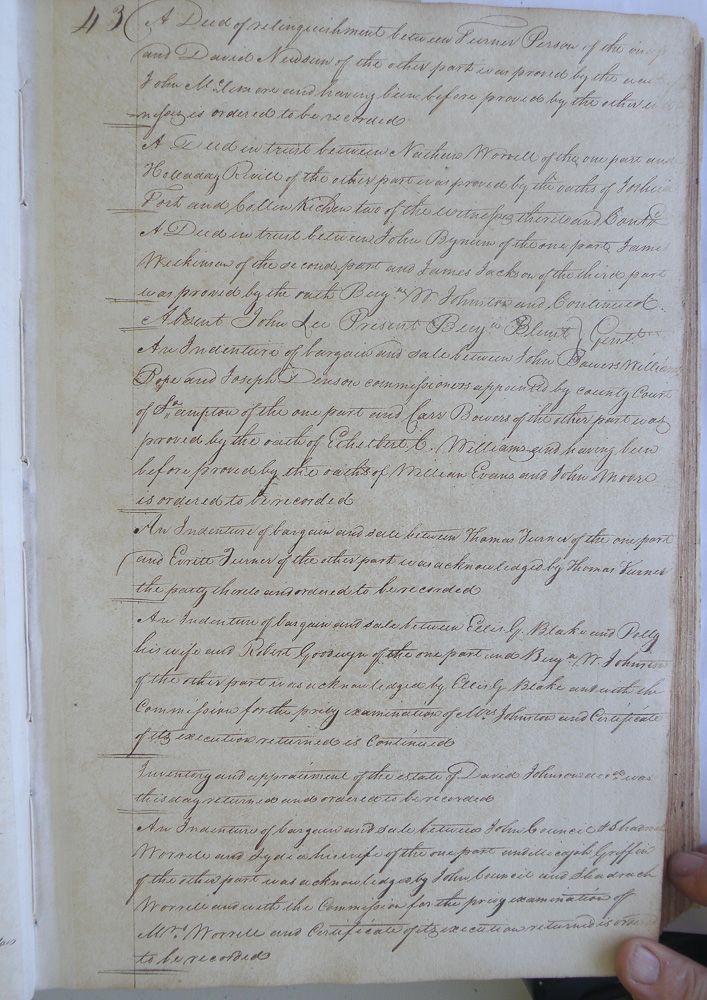 43
A Deed of relinquishment between Turner Person of the one
and David Newsum of the other part was proved by the
John McLemore and having been before proved by the other
nesses is ordered to be recorded
A Deed in trust between Nathan Worrell of the one part and
Holladay Revill of the other part was proved by the oaths of Joshua
Fort and Collin Kichen two of the witnesses thereto and Contd
A Deed in trust between John Bynum of the one part James
Wilkinson of the second part and James Jackson of the third part
was proved by the oath Benjn W. Johnston and Continued.
Absent John Lee Present Benjn Blunt Gent
An Indenture of bargain and sale between John Bowers William
Pope and Joseph Denson commissioners appointed by county Court
of So ampton of the one part and Carr Bowers of the other part was
proved by the oath of Ethelbert C. Williams and having been
before proved by the oaths of William Evans and John Moore
is ordered to be recorded
An Indenture of bargain and sale between Thomas Turner of the one part
and Everett Turner of the other part was acknowledged by Thomas Turner
the party thereto and ordered to be recorded
An Indenture of bargain and sale between Ellis G. Blake and Polly
his wife and Robert Goodwyn of the one part and Benjn W. Johnston
of the other part was acknowledged by Ellis G Blake and with the
Commission for the privy examination of Mrs Johnston and Certificate
of its execution returned is Continued
Inventory and appraisment of the estate of David Johnson decd was
this day returned and ordered to be recorded
An Indenture of bargain and sale between John Council & Shadrach
Worrell and Lydia his wife of the one part and Micajah Griffin
of the other part was acknowledged by John Council and Shadrach
Worrell and with the Commission for the privy examination of
Mrs Worrell and Certificate of its execution returned is
to be recorded